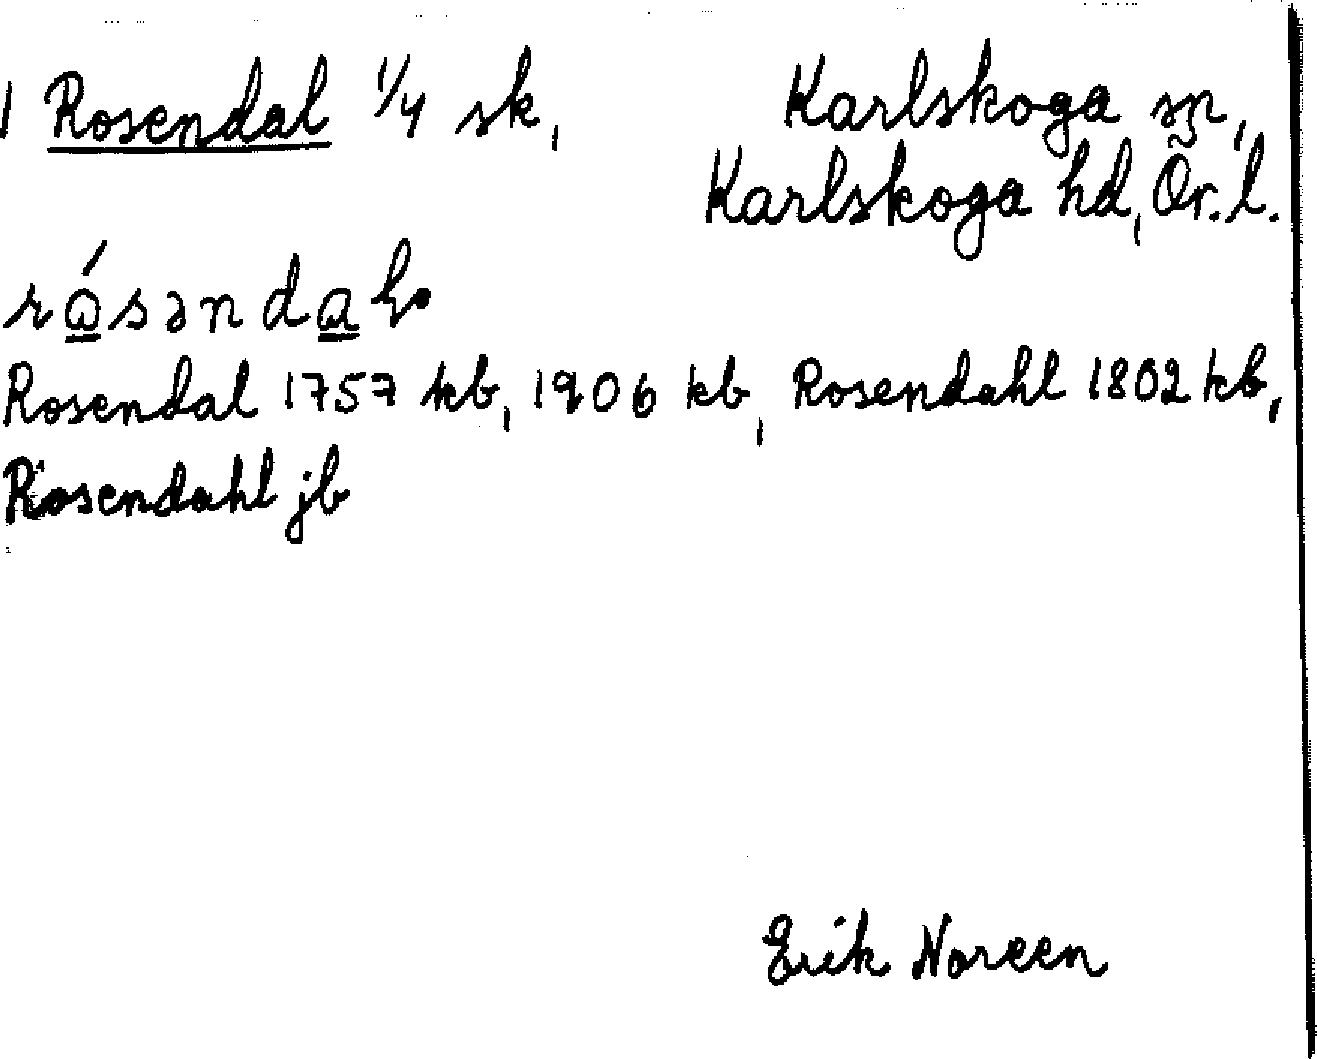 1 Rosendal 1/4 sk, Karlskoga sn,
Karlskoga hd, Ör. l.
Rosendal 1757 kb, 1906 kb, Rosendahl 1802 kb,
Rosendahl jb
Erik Noreen